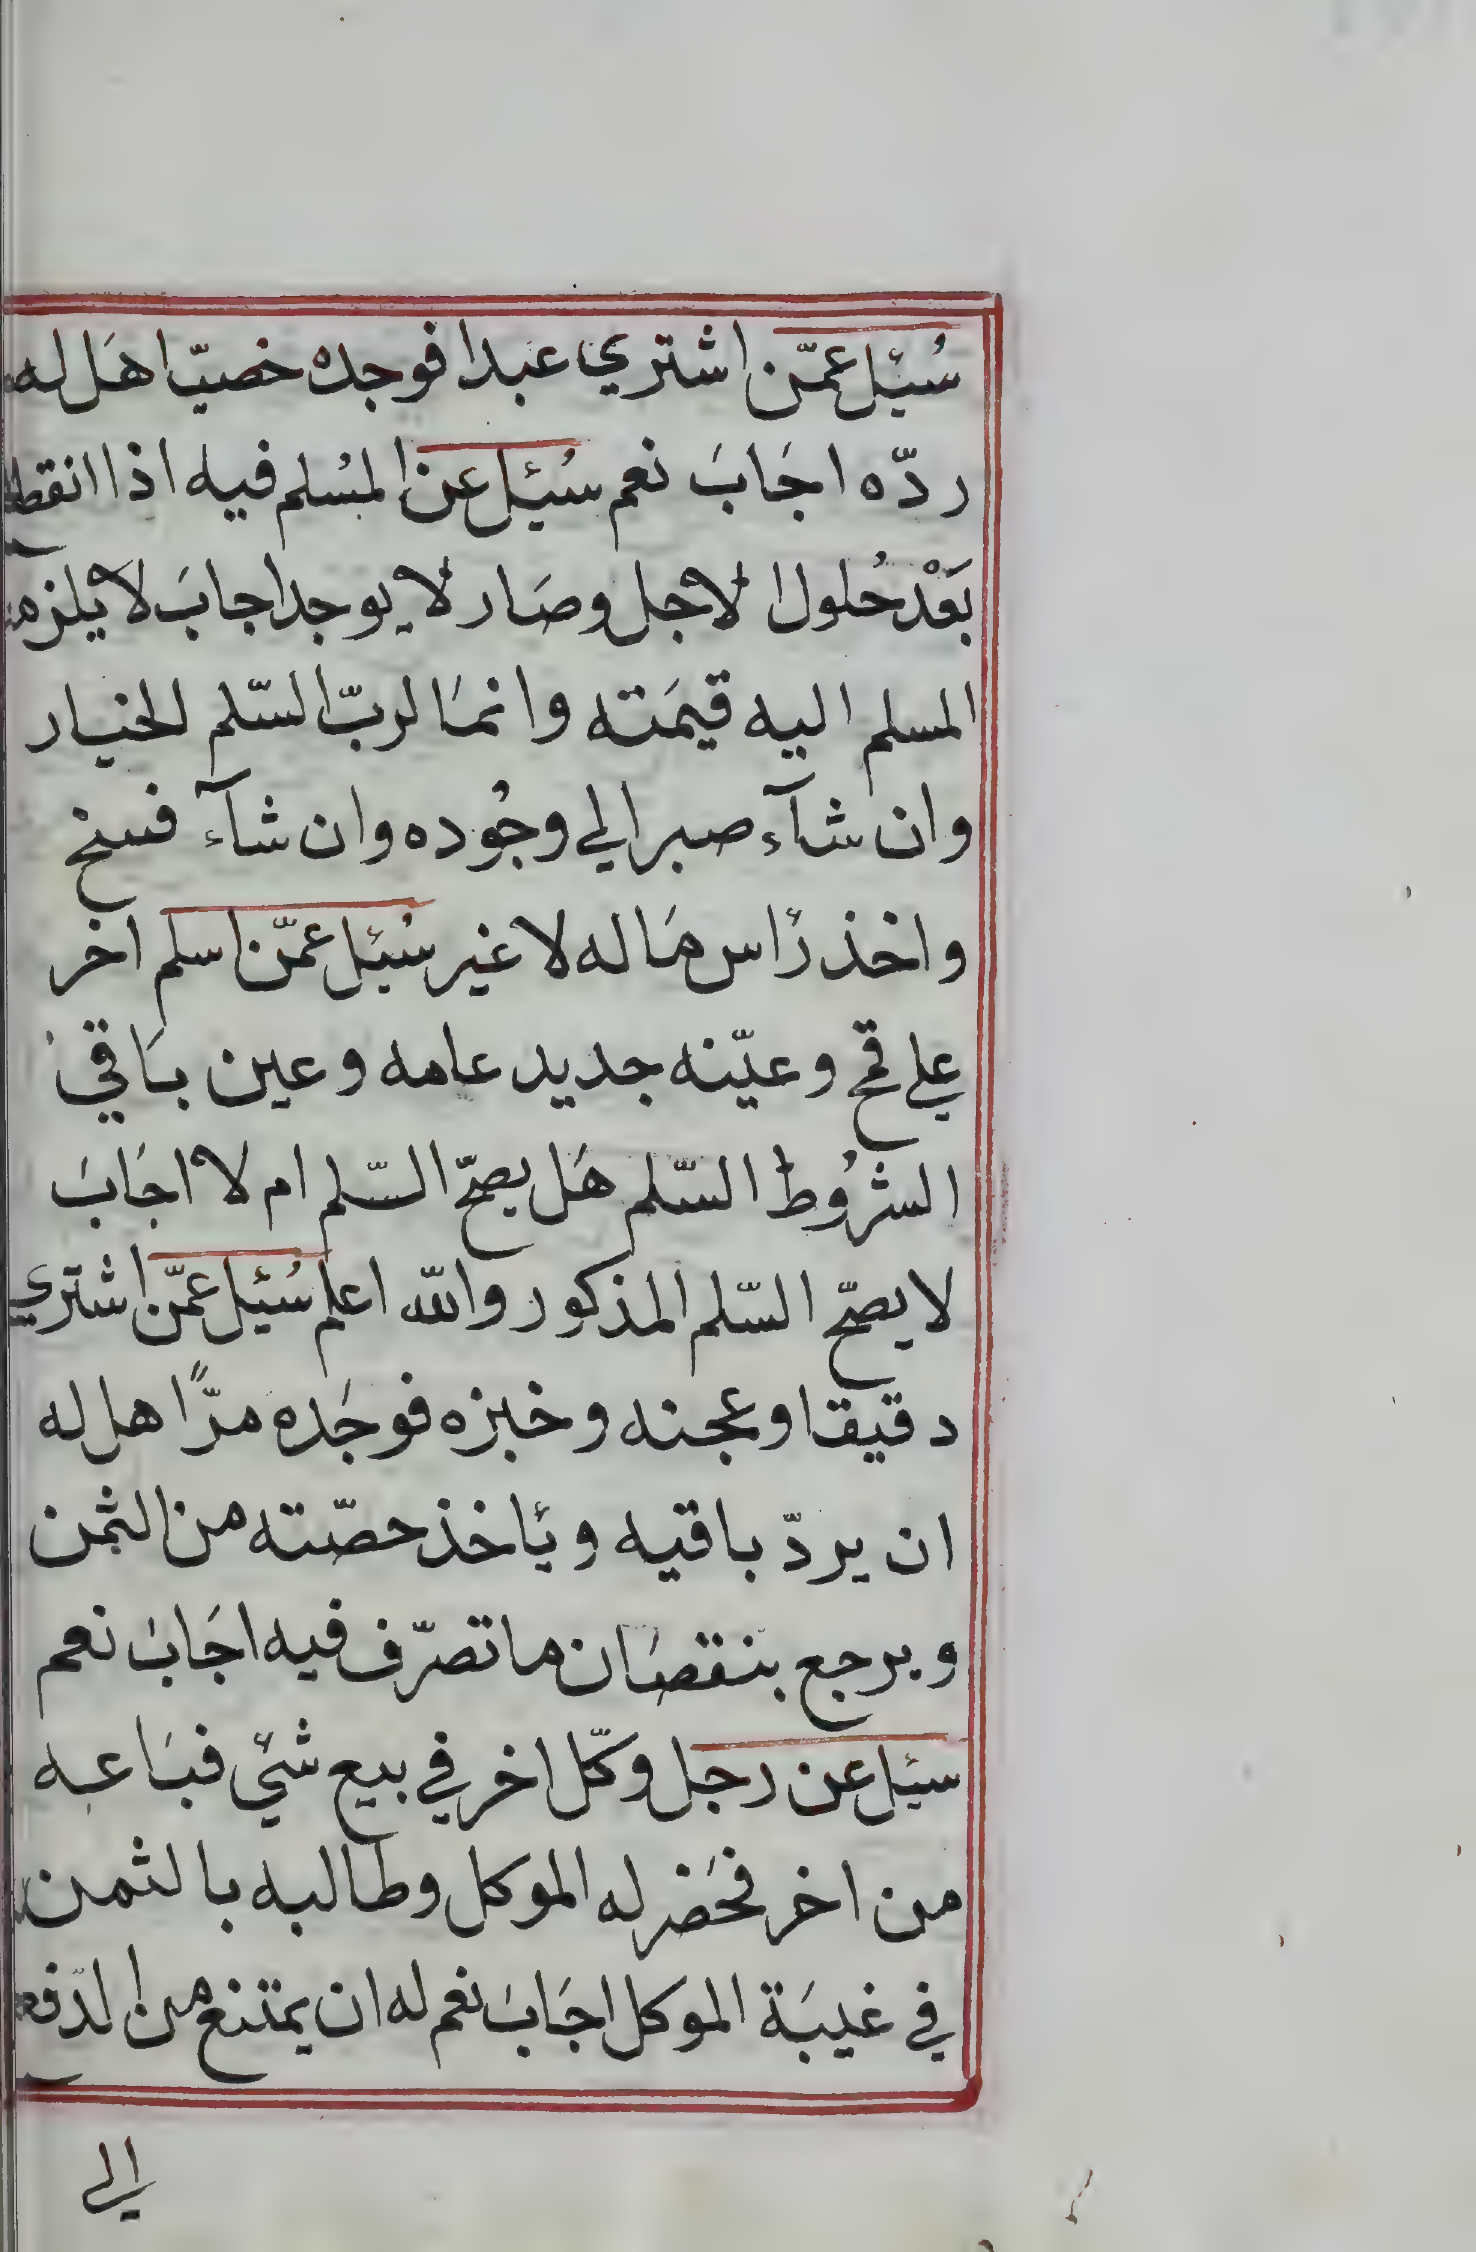 سُئِل عمّن اشتري عبدا فوجده خصيّا هَل له
ردّه اجَابَ نعم سُئِل عن المسُلم فيه اذا انقطع
بَعْد حُلول الاجل وصَار لا يوجد اجابَ لا يلزم
المسلم اليه قيمَته وانمَا لربّ السّلم الخيار
وان شآء صبر الي وجُوده وان شآء فسخ
واخذ رَأس مَاله لا غير سُئِل عمّن اسلم اخر
علي قمح وعيّنه جديد عامه وعين بَاقي
الشرُوط السّلم هَل يصحّ السّلم ام لا اجَابَ
لا يصحّ السّلم المذكور والله اعلم سُئِل عمّن اشتري
دقيقا وعجنه وخبزه فوجَده مرًّا هل له
ان يردّ باقيه ويأخذ حصّته من الثمن
ويرجع بنقصَان ما تصرّف فيه اجَابَ نعم
سئِل عن رجل وكّل اخر في بيع شئي فبَاعه
من اخر فحَضر له الموكل وطالبه بالثمن
في غيبَة الموكل اجَابَ نعم له ان يمتنع من الدّفع
الي